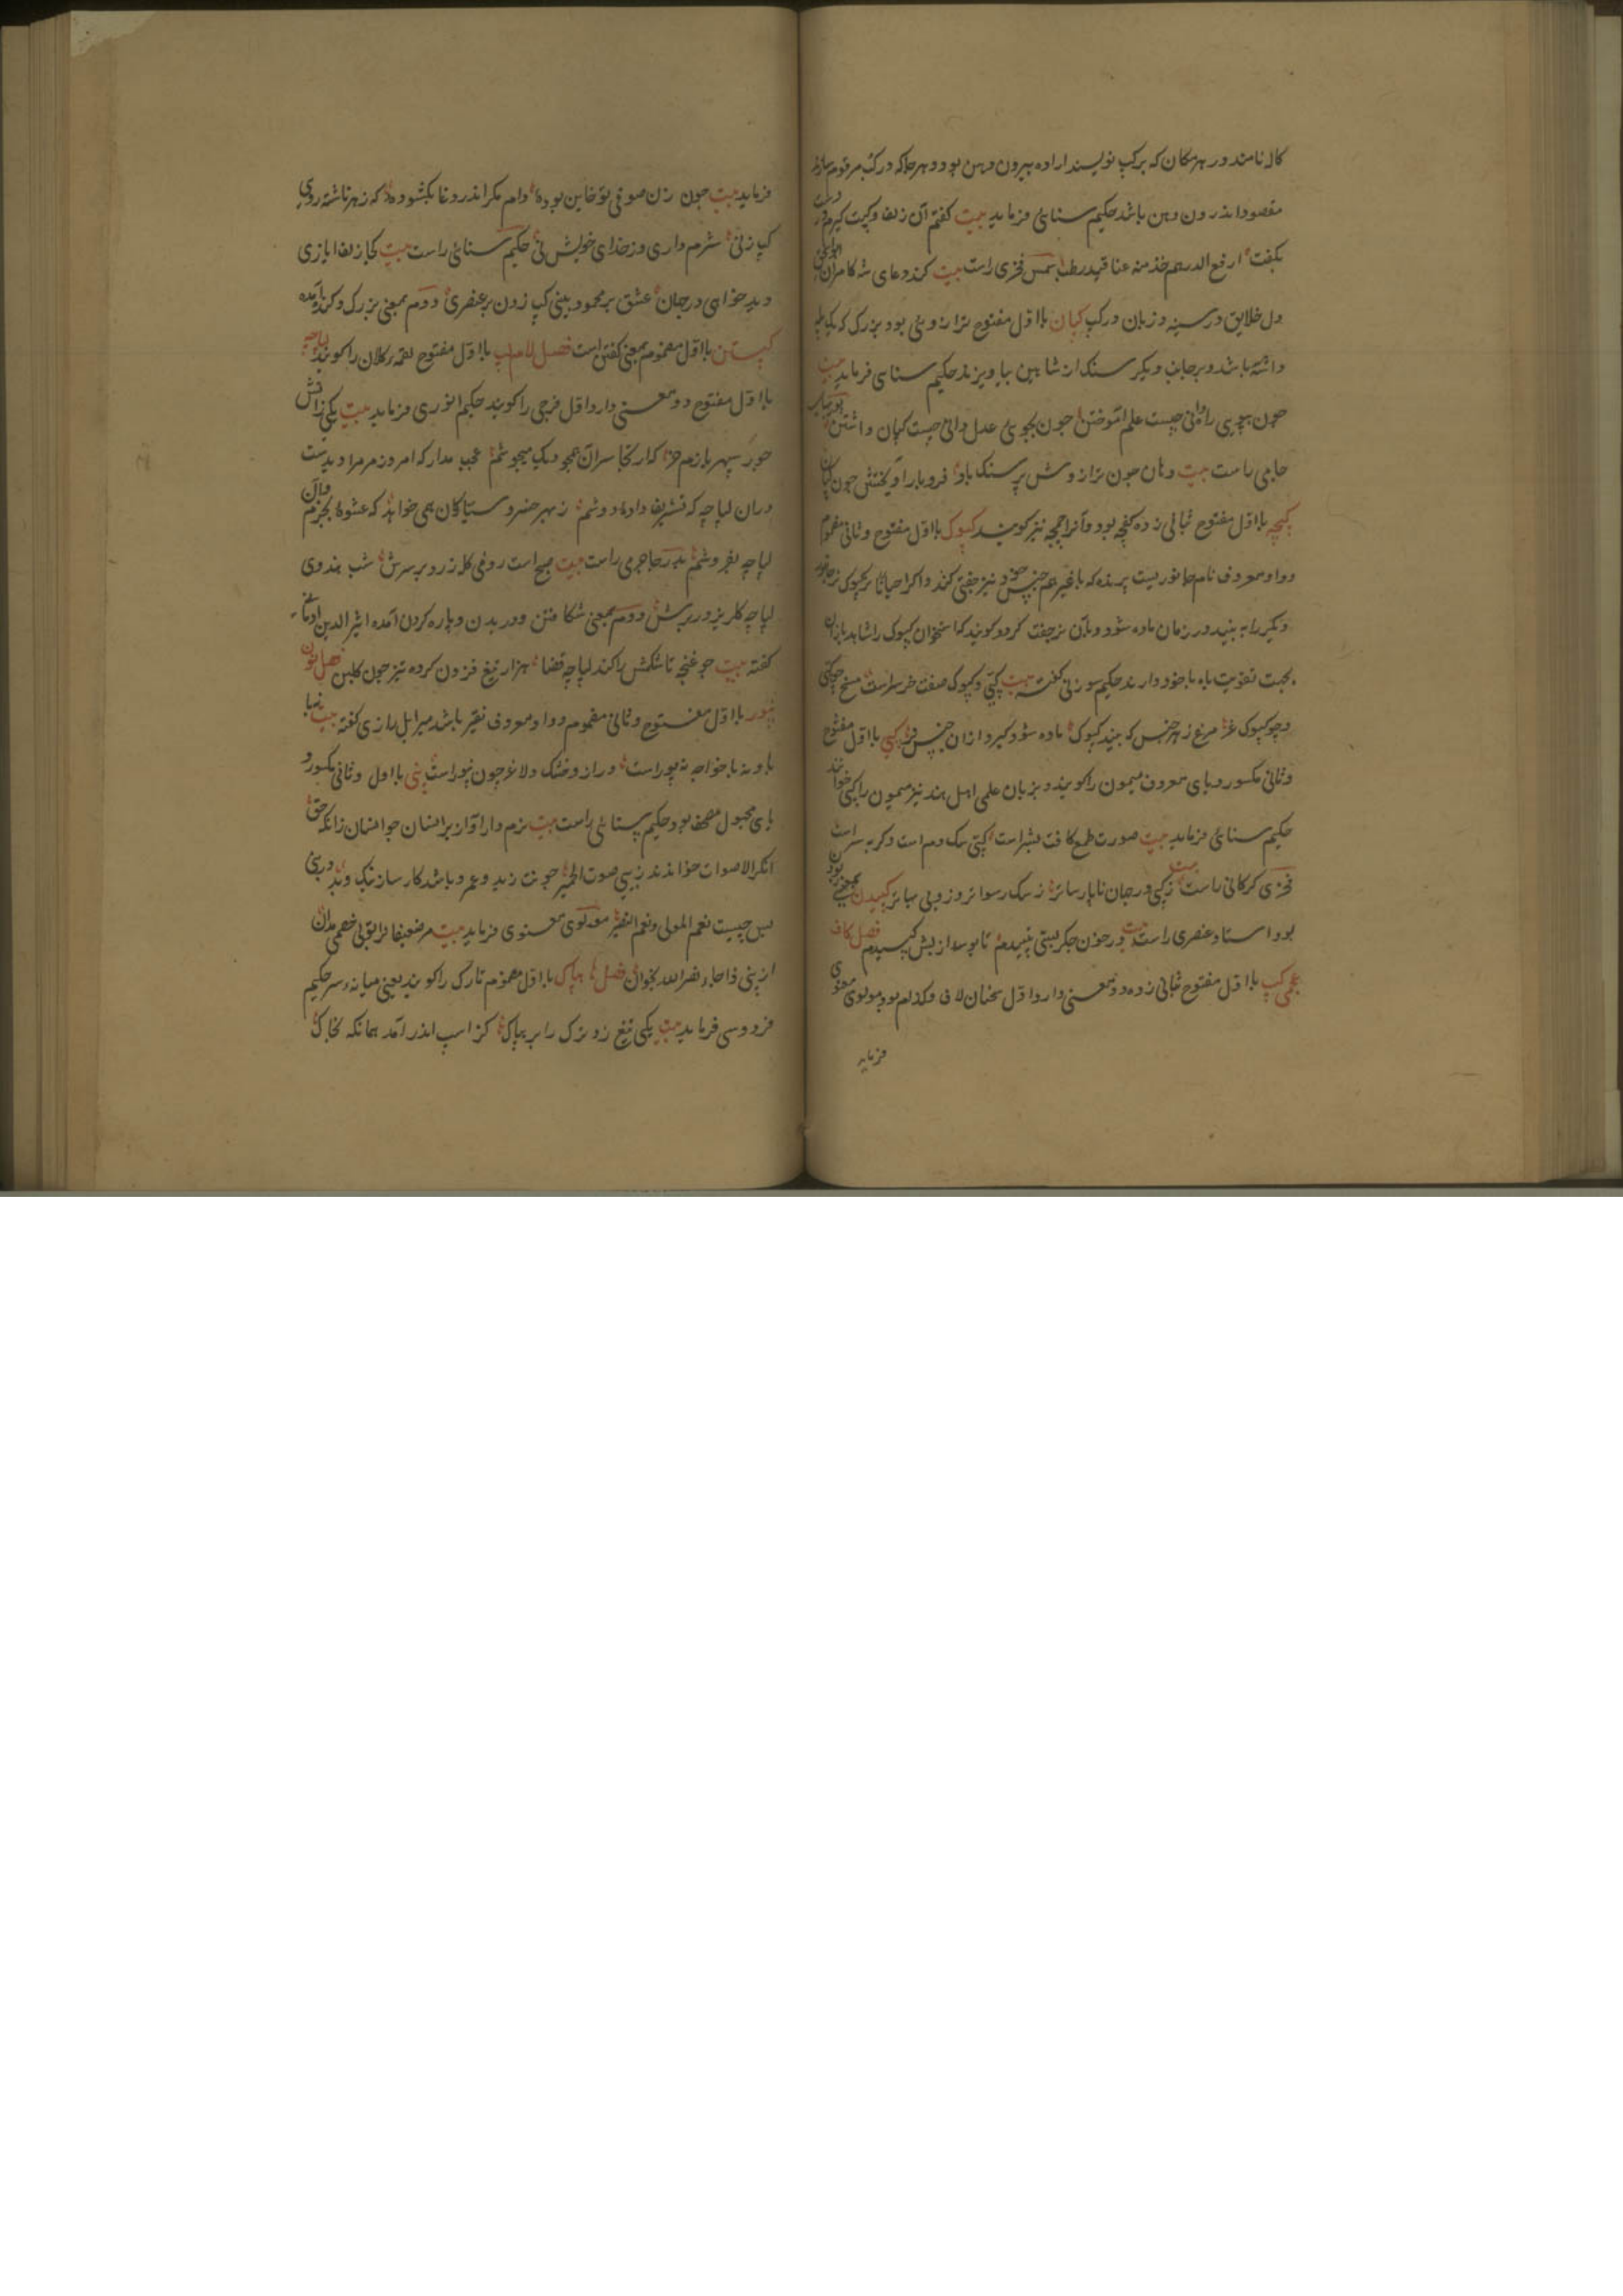 کاله نامند در هر مکان که بر کپ نویسند اراده بیرون دهن بود و هر جا که در کپ مرقوم سازند
مقصود اندرون دهن باشد حکیم سنائی فرماید بیت گفتم آن زلف و کپت گیرم
بگفت ارفع الدرهم خذ منه عناقید رطب شمس فخری راست بیت کند دعای شه کامران
دل خلایق در سینه و زبان در کپ کپان با اول مفتوح ترازوئی بود بزرگ که یک پله
داشته باشد و بر جانب دیگر سنگ از شاهین بیاویزند حکیم سنای فرماید بیت
چون بجویی راه دانی چیست علم آموختن چون بجوئی عدل دانی چیست کپان داشتن
جامی راست بیت دهان چون ترازوش پر سنگ باد فرو باد آویختش چون کپان
کپچه با اول مفتوح ثبانی زده کفچه بود و آنرا چمچه نیز گویند کپوک با اول مفتوح و ثانی مضموم
و واو معروف نام جانوریست پرنده که با غیر هم جنس خود نیز جفتی کند و اگر احیانا نر کپوک نر جانور
دیگر را به بیند در زمان ماده شود و بآن نر جفت گردد گویند که استخوان کپوک را شاید بازان
بجهت تقویت باه با خود دارند حکیم سوزنی گفته بیت کپی و کپوک صفت خر سراست
و چو کپوک مرغ ز هر جنس که بیند کپوک ماده شود گیرد ازان جنس نر کپی با اول مفتوح
و ثانی مکسور و یای معروف میمون را گویند و بزبان علمی اهل هند نیز میمون را کپی خوانند
حکیم سنائی فرماید بیت صورت طمع کافت بشر است کپی سگ دم است و گربه سر است
فخری گرگانی راست بیت ز کپی در جهان ناپارساتر ز سگ رسواتر و زوبی بهاتر کپیدن بمعنی
بود استاد عنصری راست بیت در خون جگر بستی کپیدم فصل کاف
عجمی کپ با اول مفتوح ثبانی زده دو معنی دارد اول سخنان لاف و گذاف بود مولوی معنوی
فرماید
فرماید بیت چون زن صوفی تو خاین بوده دام مکر اندر دغا بکشوده که ز هر ناشسته روی
کپ زنی شرم داری وز خدای خویش نی حکیم سنائی راست بیت کجا زلف ایازی
دید خواهی در جهان عشق بر محمود بینی کپ زدن بر عنصری دوم بمعنی بزرگ و گنده آمده
کپستن با اول مضموم بمعنی گفتن است فصل لام لپ با اول مفتوح لقمه کلان را گویند لپاچه
با اول مفتوح دو معنی دارد اول فرجی را گویند حکیم انوری فرماید بیت
جور سپهر بازم خر که از کجا سران همچو دیک میجوشم عجب مدار که امروز مرمرا دیدست
دران لپاچه که تشریف داده دوشم ز بهر خسرو سیارگان همی خواهد که عشوه بخرم وان
لپاچه بفروشم بدر جاجرمی راست بیت صبح است رومی کله زرد بر سرش شب هندوی
لپاچه کلریز در برش دوم بمعنی شکافتن و دریدن و پاره کردن آمده اثیر الدین اومانی
گفته بیت چو غنچه تا شکمش را کند لپاچه قضا هزار تیغ فزون کرده تیز چون گلبن فصل نون
نپور با اول مفتوح و ثانی مضموم و واو معروف نفیر باشد میرابل رازی گفته بیت
باد نه با خواجه نه پوراست دراز و خشک و لاغر چون نپوراست نپی با اول و ثانی مکسور و
یای مجهول مصحف بود حکیم سنائی راست بیت نرم دار آواز بر انسان چو انسان زانکه حق
انکر الاصوات خواند در نپی صوت الحمیر چونت زید و عمرو باشد کار ساز نیک و بد در نپی
پس چیست نعم المولی و نعم النصیر مولوی معنوی فرماید بیت مر ضعیفان را تو بی خصمی مدان
از نپی ذا جاء نصر الله بخوان فصل ها هپاک با اول مضموم تارک را گویند یعنی میانه سر حکیم
فردوسی فرماید بیت یکی تیغ زد ترک را بر هپاک کز اسب اندر آمد همانکه بخاک